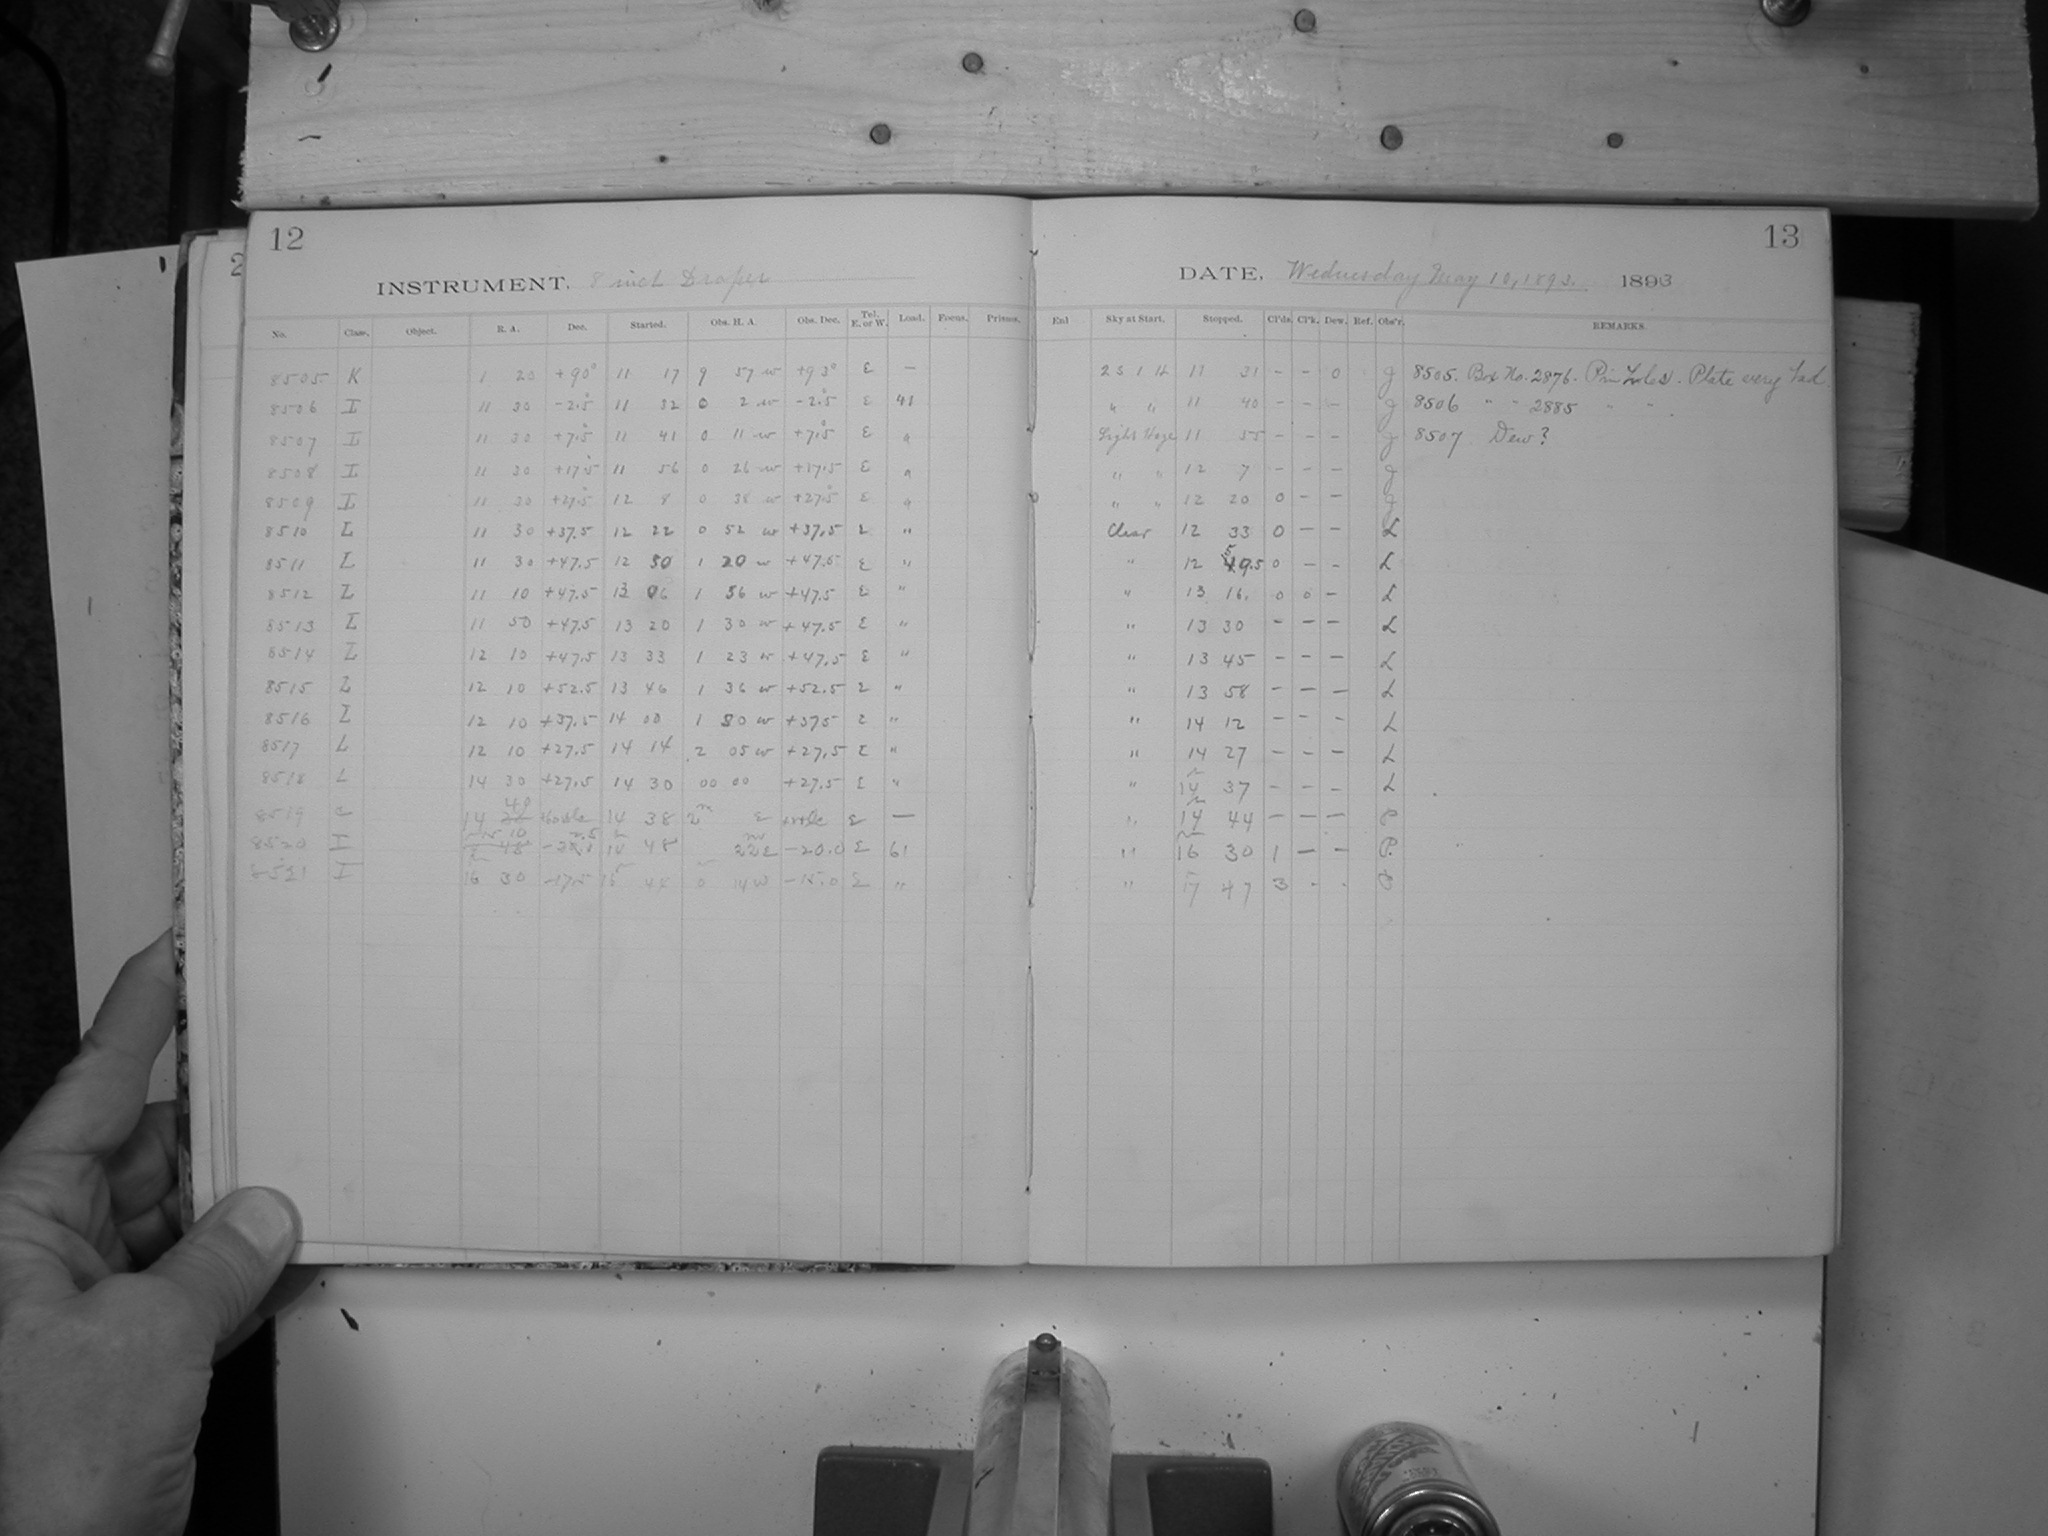 12
INSTRUMENT. 8 inch Draper
No. Class. Object. R. A. Dec. Started. Obs. H. A. Obs. Dec. Tel. E. or W. Load. Focus. Prisms.
8505 K 1 20 +90° 11 17 9 57 w +93° E —
8506 I 11 30 -2.5 11 32 0 2 w -2.5 E 41
8507 I 11 30 +7.5 11 41 0 11 w +7.5 E "
8508 I 11 30 +17.5 11 56 0 26 w +17.5 E "
8509 I 11 30 +27.5 12 8 0 38 w +27.5 E "
8510 I 11 30 +37.5 12 22 0 52 w +37.5 E "
8511 I 11 30 +47.5 12 50 1 20 w +47.5 E "
8512 I 11 10 +47.5 13 06 1 56 w +47.5 E "
8513 I 11 50 +47.5 13 20 1 30 w +47.5 E "
8514 I 12 10 +47.5 13 33 1 23 w +47.5 E "
8515 I 12 10 +52.5 13 46 1 36 w +52.5 E "
8516 I 12 10 +37.5 14 00 1 50 w +37.5 E "
8517 I 12 10 +27.5 14 14 2 05 w +27.5 E "
8518 I 14 30 +27.5 14 30 00 00 +27.5 E "
8519 C 14 40 14 38 2m E E —
8520 I 15 10 14 48 22 E -20.0 E 61
8521 I 16 30 -17.5 0 14 W -15.0 E "
13
DATE. Wednesday May 10, 1893. 1893
Enl Sky at Start. Stopped. Cl'ds. Cl'k. Dew. Ref. Obs'r. REMARKS.
2 S 1 H 11 31 - - 0 J 8505. Box No. 2876. Pin holes. Plate very bad
" " 11 40 - - - J 8506 " " 2885 " "
Light Haze 11 55 - - - J 8507 Dew?
" " 12 7 - - - J
" " 12 20 0 - - J
Clear 12 33 0 - - L
" 12 0 - - L
" 13 16. 0 0 - L
" 13 30 - - - L
" 13 45 - - - L
" 13 58 - - - L
" 14 12 - - - L
" 14 27 - - - L
" 14 37 - - - L
" 14 44 - - - P
" 16 30 1 - - P.
" 17 47 3 - - P